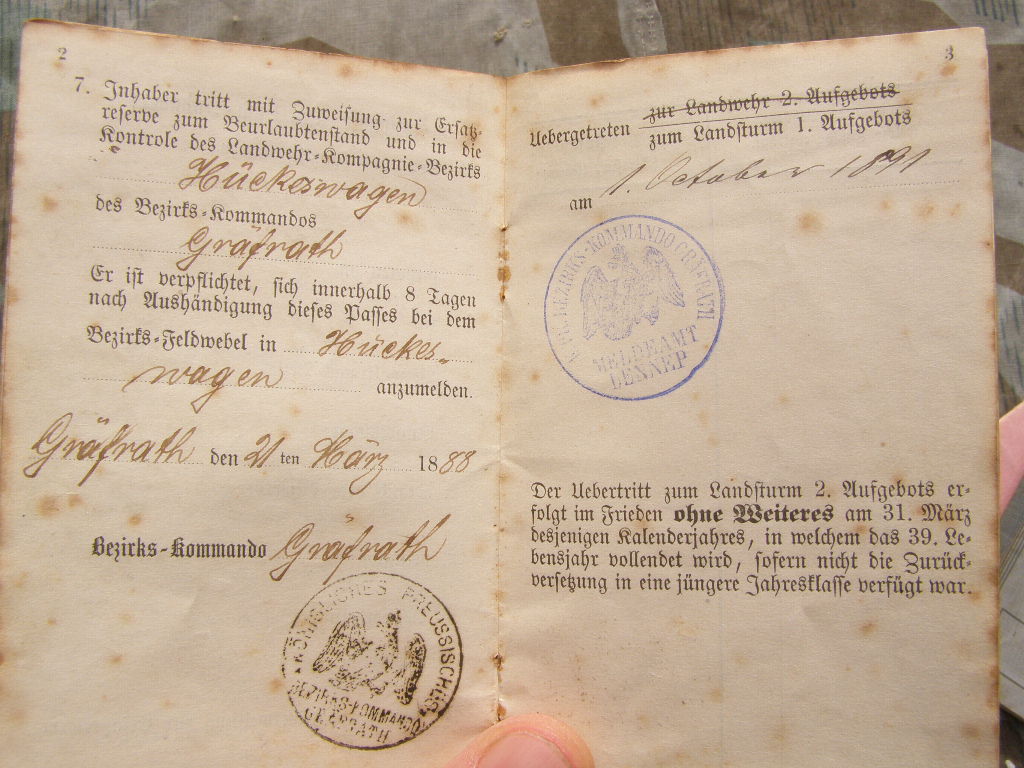 2
7. Inhaber tritt mit Zuweisung zur Ersatz-
reserve zum Beurlaubtenstand und in die
Kontrole des Landwehr-Kompagnie-Bezirks
Hückeswagen
des Bezirks-Kommandos
Gräfrath
Er ist verpflichtet, sich innerhalb 8 Tagen
nach Aushändigung dieses Passes bei dem
Bezirks-Feldwebel in Hückes-
wagen anzumelden.
Gräfrath den 21ten März 1888
Bezirks-Kommando Gräfrath
KÖNIGLICHES PREUSSISCHES
BEZIRKS-KOMMANDO
GRÄFRATH
3
zur Landwehr 2. Aufgebots
Uebergetreten
zum Landsturm 1. Aufgebots
am 1. October 1891
BEZIRKS-KOMMANDO GRÄFRATH
MELDEAMT
LENNEP
Der Uebertritt zum Landsturm 2. Aufgebots er-
folgt im Frieden ohne Weiteres am 31. März
desjenigen Kalenderjahres, in welchem das 39. Le-
bensjahr vollendet wird, sofern nicht die Zurück-
versetzung in eine jüngere Jahresklasse verfügt war.